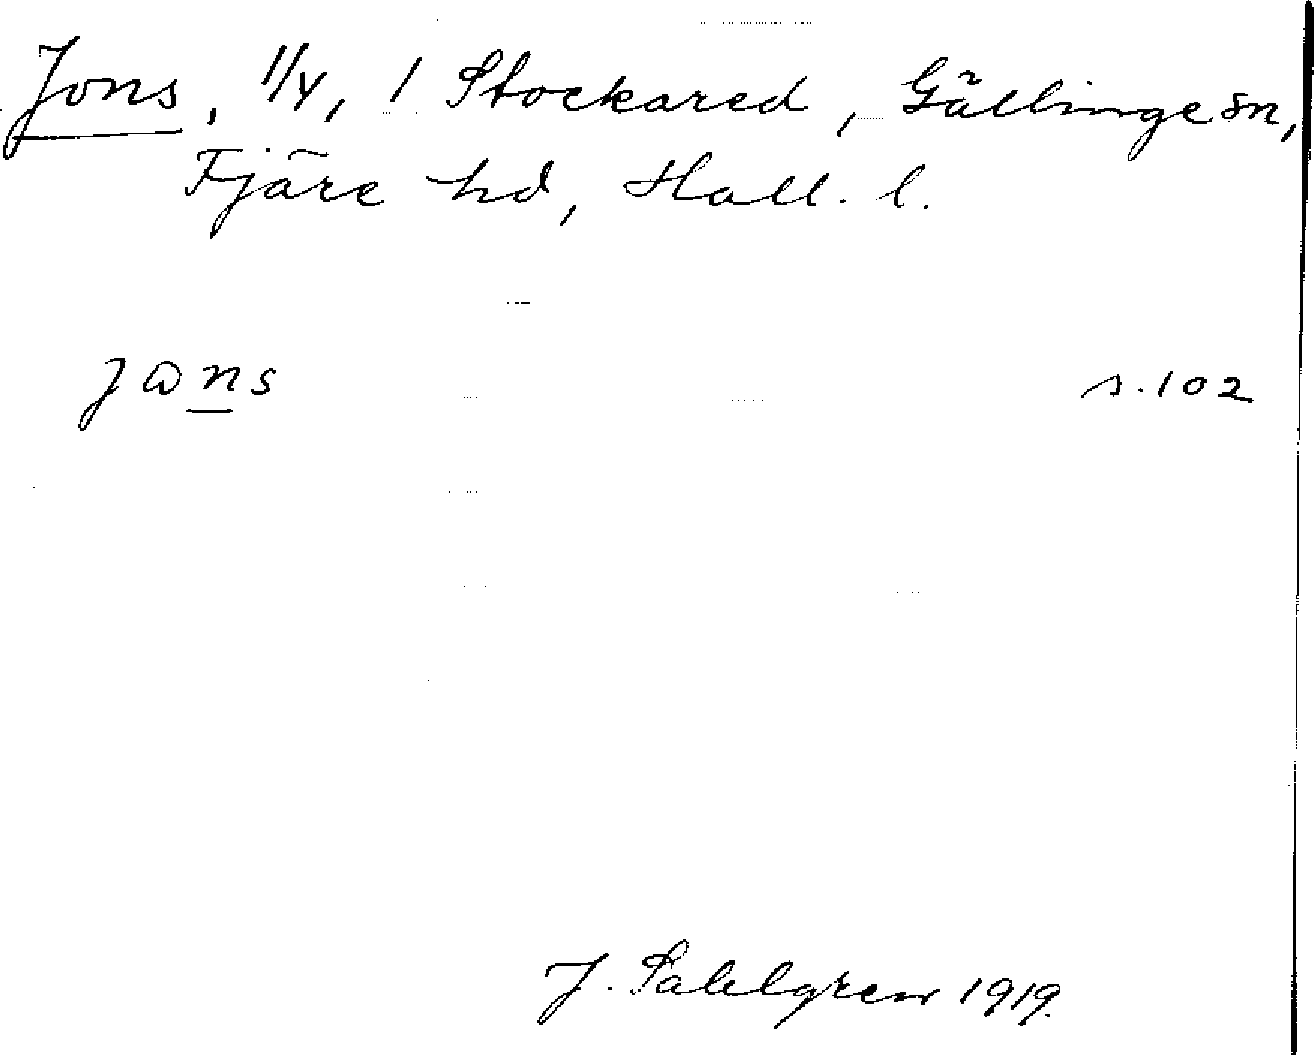 Jons, 1/4, 1 Stockared, Gällinge sn,
Fjäre hd, Hall. l.
jɷns s. 102
J. Sahlgren 1919.